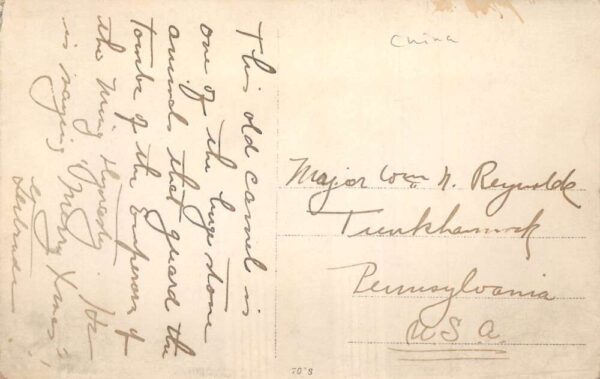 This old camel is
one of the huge stone
animals that guard the
tombs of the Emperors of
the Ming Dynasty. He
is saying "Merry Xmas"!
Gertrude
China
Major Wm N. Reynolds
Tunkhannock
Pennsylvania
U.S.A.